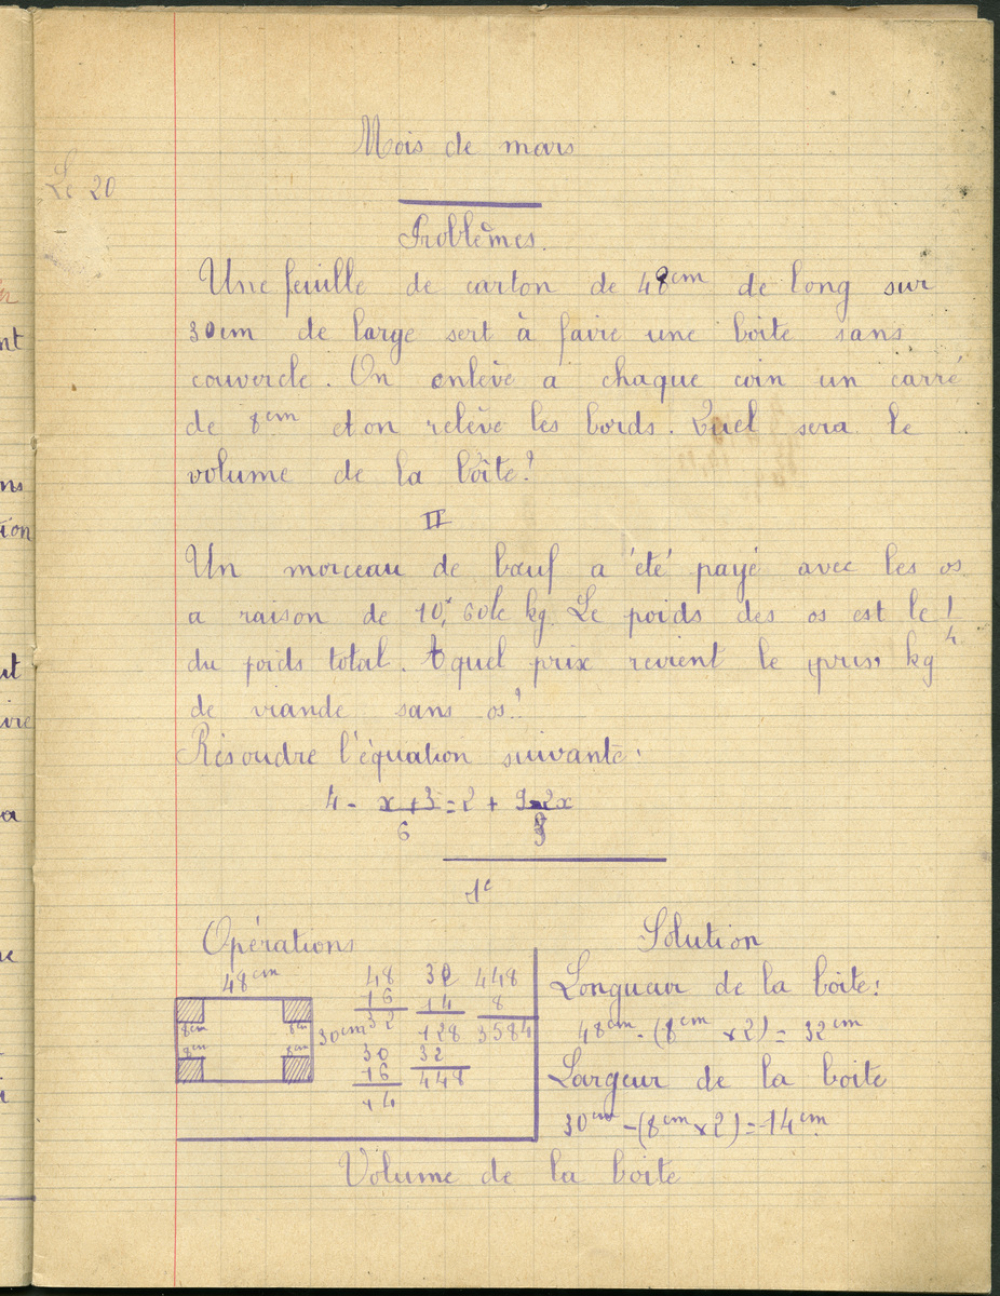 Mois de mars
Le 20
Problèmes.
Une feuille de carton de 48cm de long sur
30cm de large sert à faire une boîte sans
couvercle. On enlève a chaque coin un carré
de 8cm et on relève les bords. Quel sera le
volume de la boîte?
II
Un morceau de bœuf a été payé avec les os
a raison de 10f,60 le kg. Le poids des os est le 1/4
du poids total. A quel prix revient le kg
de viande sans os?
Résoudre l'équation suivante:
4 - x+3 = 2 + 9-2x
6
1e
Opérations Solution
48cm 48 32 448
16 14 8
32 128 3584
30cm
8cm 8cm
8cm 8cm
30 32
16 448
14
Longueur de la boîte:
48cm - (8cm x2) = 32cm
Largeur de la boite
30cm - (8cm x2) = 14cm
Volume de la boite